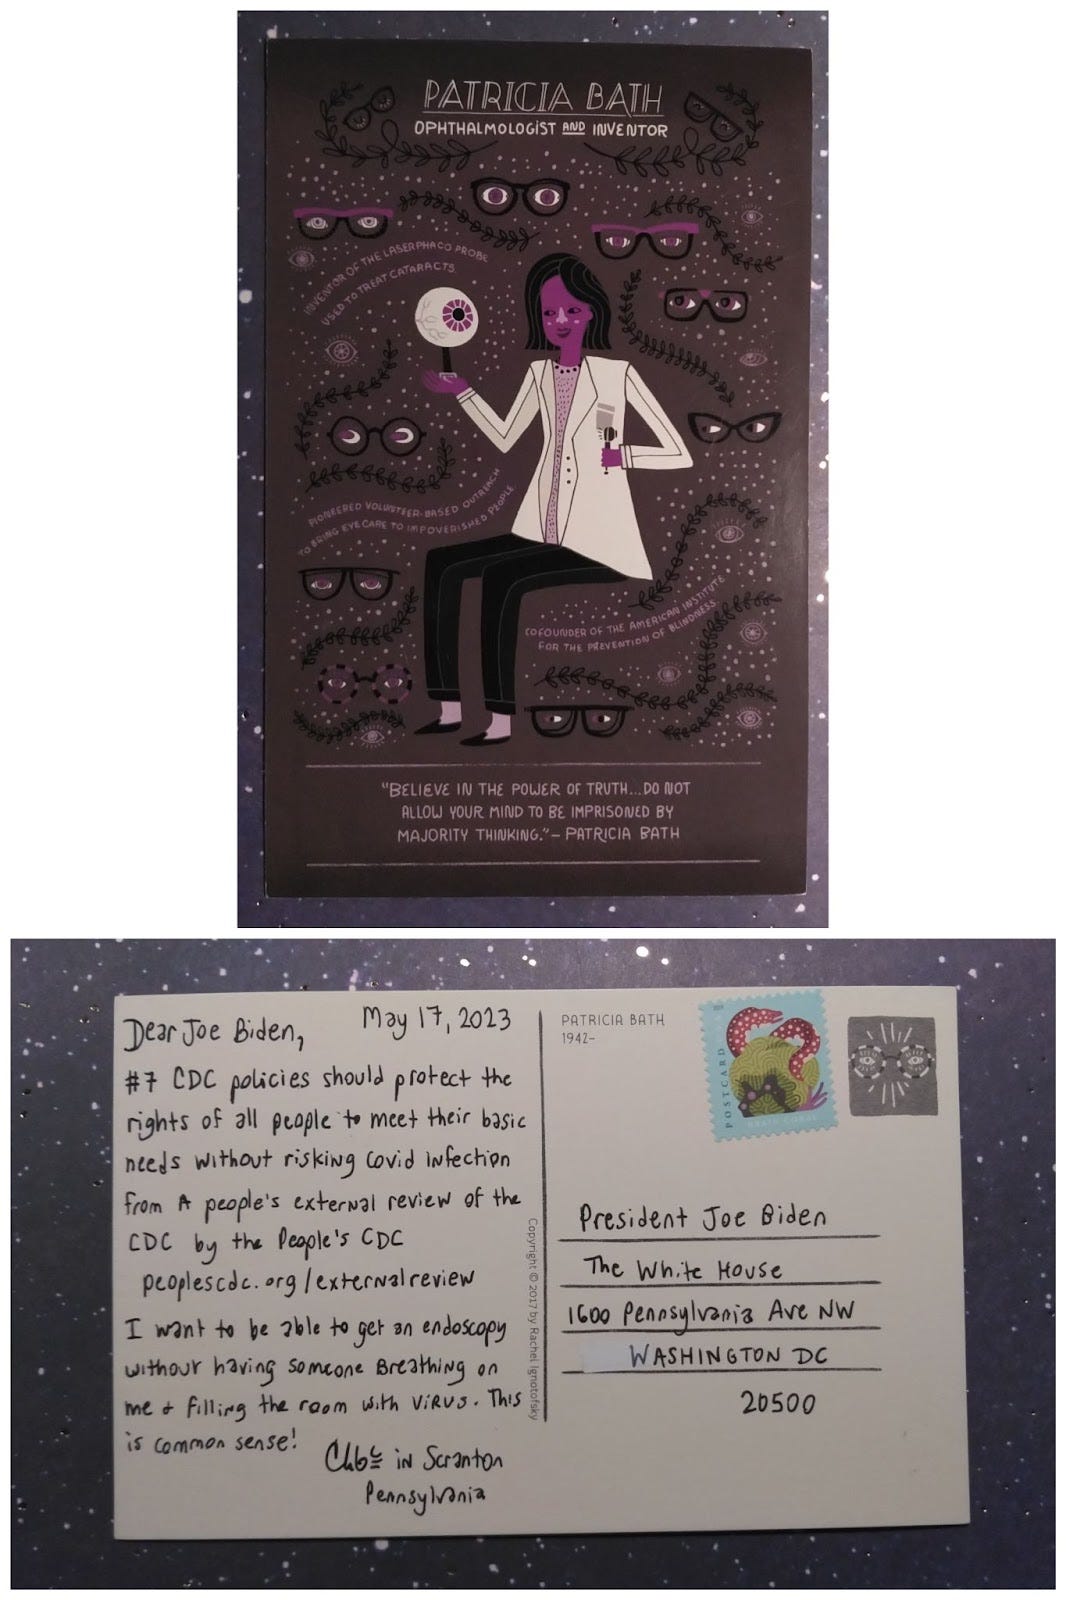 PATRICIA BATH
OPHTHALMOLOGIST AND INVENTOR
INVENTOR OF THE LASERPHACO PROBE
USED TO TREAT CATARACTS.
PIONEERED VOLUNTEER-BASED OUTREACH
TO BRING EYE CARE TO IMPOVERISHED PEOPLE
COFOUNDER OF THE AMERICAN INSTITUTE
FOR THE PREVENTION OF BLINDNESS.
"BELIEVE IN THE POWER OF TRUTH...DO NOT
ALLOW YOUR MIND TO BE IMPRISONED BY
MAJORITY THINKING."– PATRICIA BATH
Dear Joe Biden,
May 17, 2023
#7 CDC policies should protect the
rights of all people to meet their basic
needs without risking Covid infection
from A people's external review of the
CDC by the People's CDC
peoplescdc.org/externalreview
I want to be able to get an endoscopy
without having someone Breathing on
me & filling the room with VIRUS. This
is common sense!
Chloe in Scranton
Pennsylvania
Copyright © 2017 by Rachel Ignotofsky
PATRICIA BATH
1942–
POSTCARD
BRAIN CORAL
President Joe Biden
The White House
1600 Pennsylvania Ave NW
WASHINGTON DC
20500